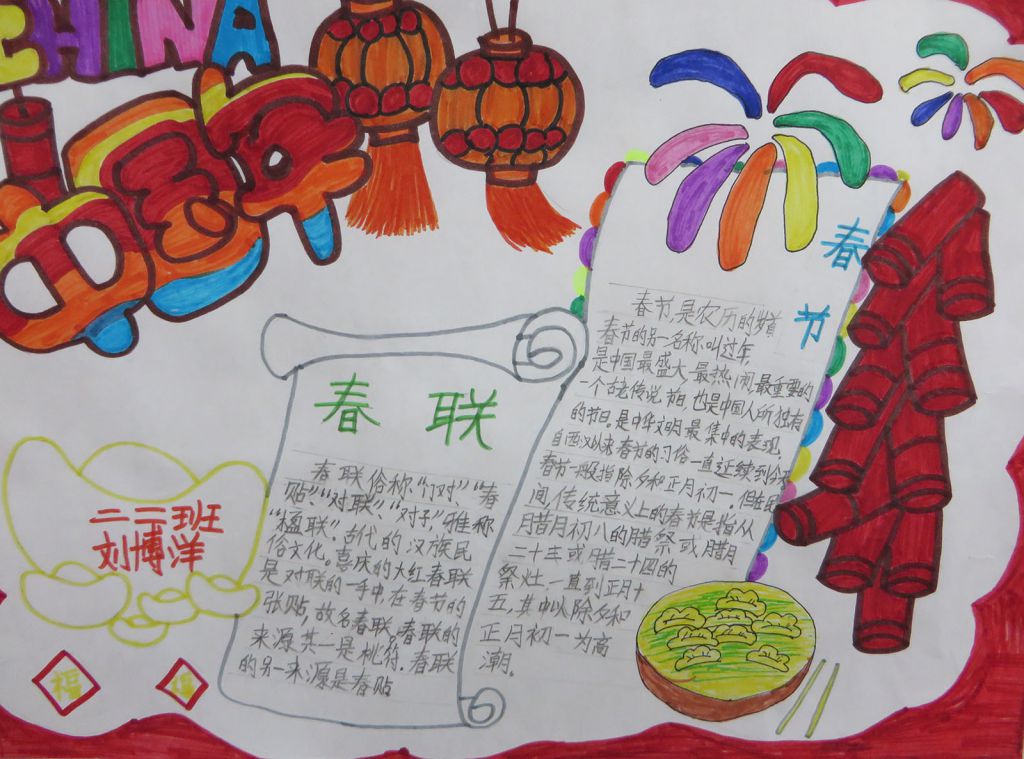 CHINA
中国年
春节
春节是农历的岁首
春节的另一名称叫过年,
是中国最盛大、最热闹、最重要的
一个古老传说节日,也是中国人所独有
的节日。是中华文明最集中的表现,
自西汉以来春节的习俗一直延续到今天
春节一般指除夕和正月初一。但在民
间,传统意义上的春节是指从
月腊月初八的腊祭或腊月
二十三或腊二十四的
祭灶,一直到正月十
五,其中以除夕和
正月初一为高
潮。
春联
春联俗称“门对”“春
贴”“对联”“对子”雅称
“楹联”。古代的汉族民
俗文化。喜庆的大红春联
是对联的一种,在春节的
张贴,故名春联。春联的
来源其一是桃符。春联
的另一来源是春贴
二二班
刘博洋
福
福